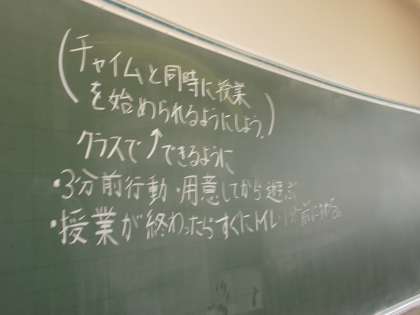 (チャイムと同時に授業
を始められるようにしよう。)
クラスで↑できるように
・3分前行動・用意してから遊ぶ
・授業が終わったらすぐにML・